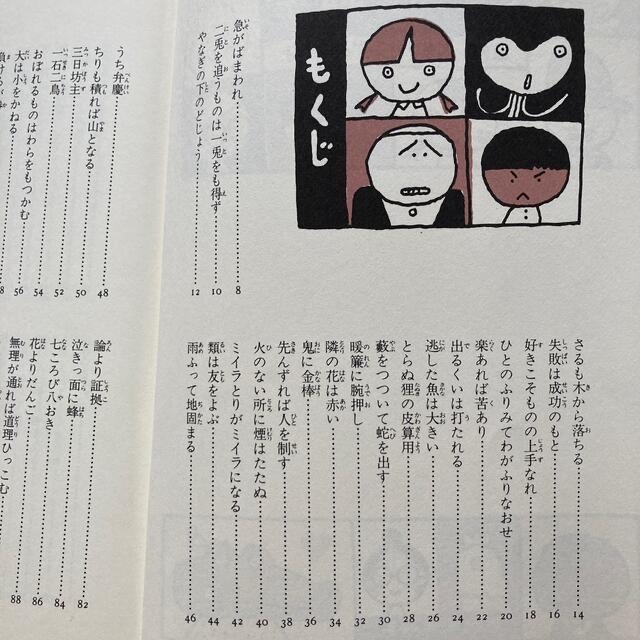 もくじ
急がばまわれ 8
二兎を追うものは一兎をも得ず 10
やなぎの下のどじょう 12
さるも木から落ちる 14
失敗は成功のもと 16
好きこそものの上手なれ 18
ひとのふりみてわがふりなおせ 20
楽あれば苦あり 22
出るくいは打たれる 24
逃した魚は大きい 26
とらぬ狸の皮算用 28
藪をつついて蛇を出す 30
暖簾に腕押し 32
隣の花は赤い 34
鬼に金棒 36
先んずれば人を制す 38
火のない所に煙はたたぬ 40
ミイラとりがミイラになる 42
類は友をよぶ 44
雨ふって地固まる 46
うち弁慶 48
ちりも積れば山となる 50
三日坊主 52
一石二鳥 54
おぼれるものはわらをもつかむ 56
大は小をかねる
論より証拠 82
泣き面に蜂 84
七ころび八おき 86
花よりだんご 88
無理が通れば道理ひっこむ